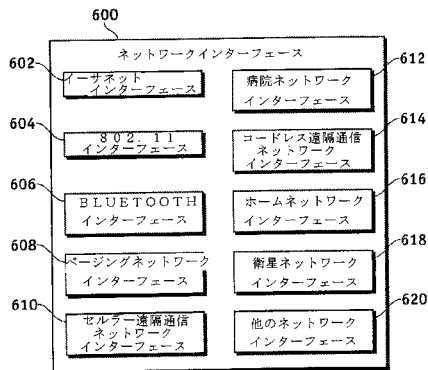 600
ネットワークインターフェース
602
イーサネット
インターフェース
604
８０２．１１
インターフェース
606
ＢＬＵＥＴＯＯＴＨ
インターフェース
608
ページングネットワーク
インターフェース
610
セルラー遠隔通信
ネットワーク
インターフェース
612
病院ネットワーク
インターフェース
614
コードレス遠隔通信
ネットワーク
インターフェース
616
ホームネットワーク
インターフェース
618
衛星ネットワーク
インターフェース
620
他のネットワーク
インターフェース